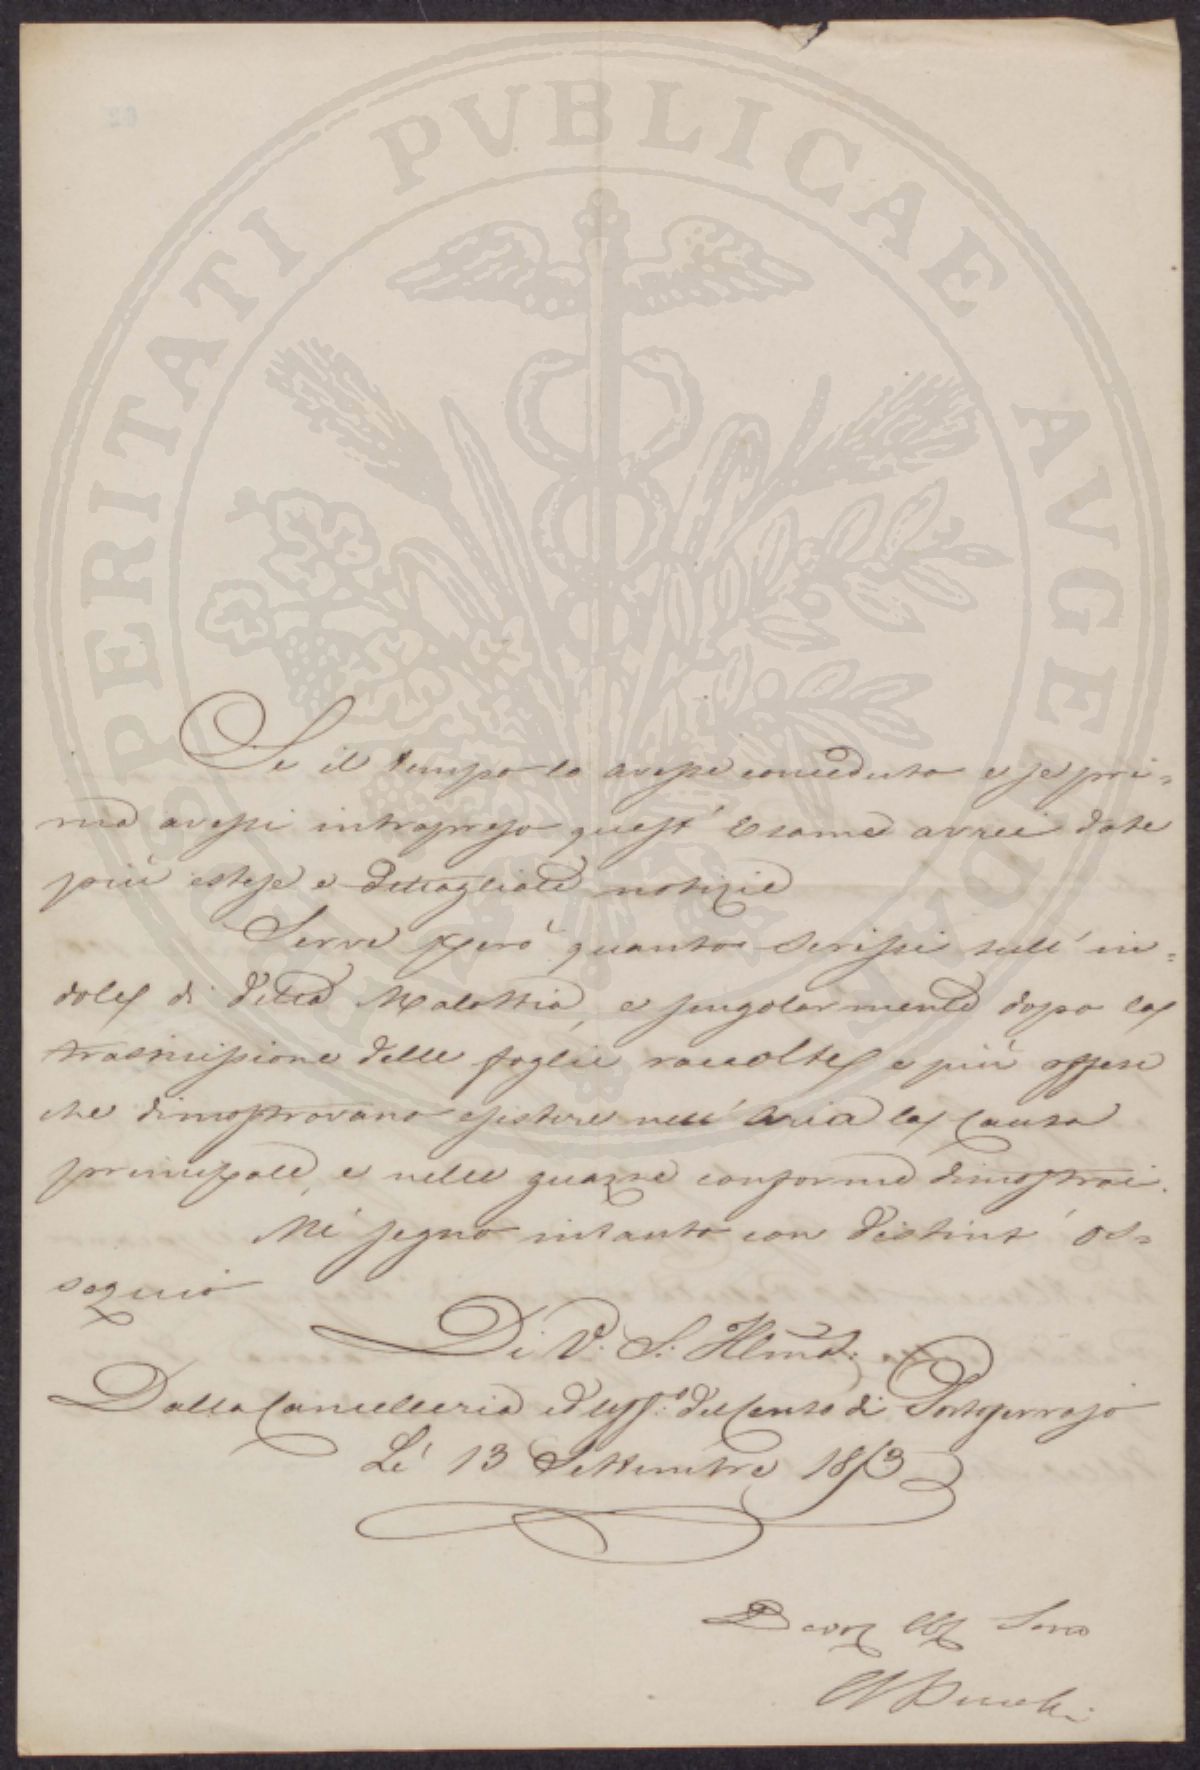 PROSPERITATI PVBLICAE AVGENDAE
Se il tempo lo avesse conceduto e se pri=
ma avessi intrapreso quest' Esame avrei date
più estese e dettagliate notizie
Serve però quanto scrissi sull' in=
dole di detta Malattia, e singolarmente dopo la
trasmissione delle foglie raccolte e più offese
che dimostravano esistere nell' aria la causa
principale, e nelle guazze conforme dimostrai.
Mi segno intanto con distint' os=
sequio
Di V. S. Illma:
Dalla Cancelleria del Censo di Portoferrajo
Li 13 Settembre 1853
Devo Obb Servo